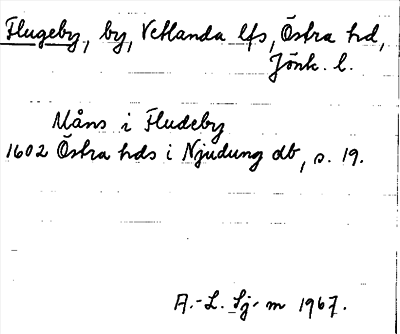 Flugeby, by, Vetlanda lfs, Östra hd,
Jönk. l.
Måns i Fludeby
1602 Östra hds i Njudung db, s. 19.
A.-L. Sj-m 1967.